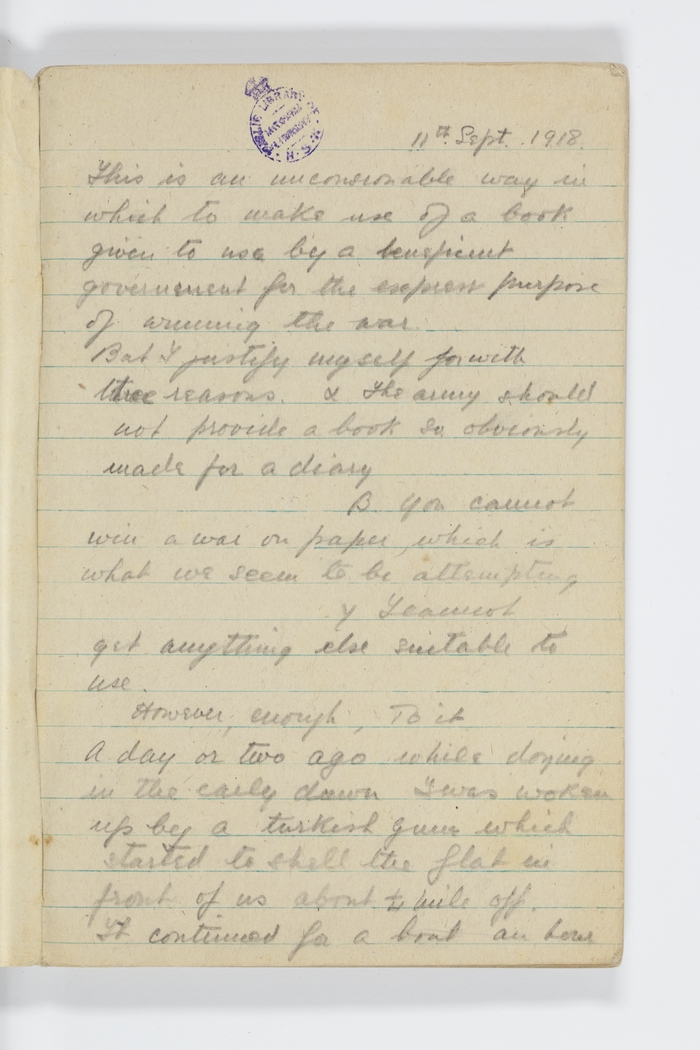 11th Sept. 1918.
This is an unconsionable way in
which to make use of a book
given to use by a beneficient
government for the express purpose
of winning the war.
But I justify myself for with
three reasons. α The army should
not provide a book so obviously
made for a diary
β You cannot
win a war on paper, which is
what we seem to be attempting
γ I cannot
get anything else suitable to
use.
However, enough, To it
A day or two ago while dozing
in the early dawn I was woken
up by a turkish gun which
started to shell the flat in
front of us about ½ mile off.
It continued for a bout an hour